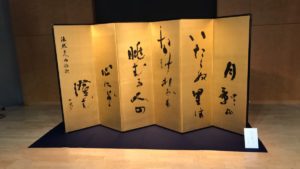 月影の
いたらぬ里は
なけれども
眺むる人の
心にぞ
澄む
法然上人御詠歌